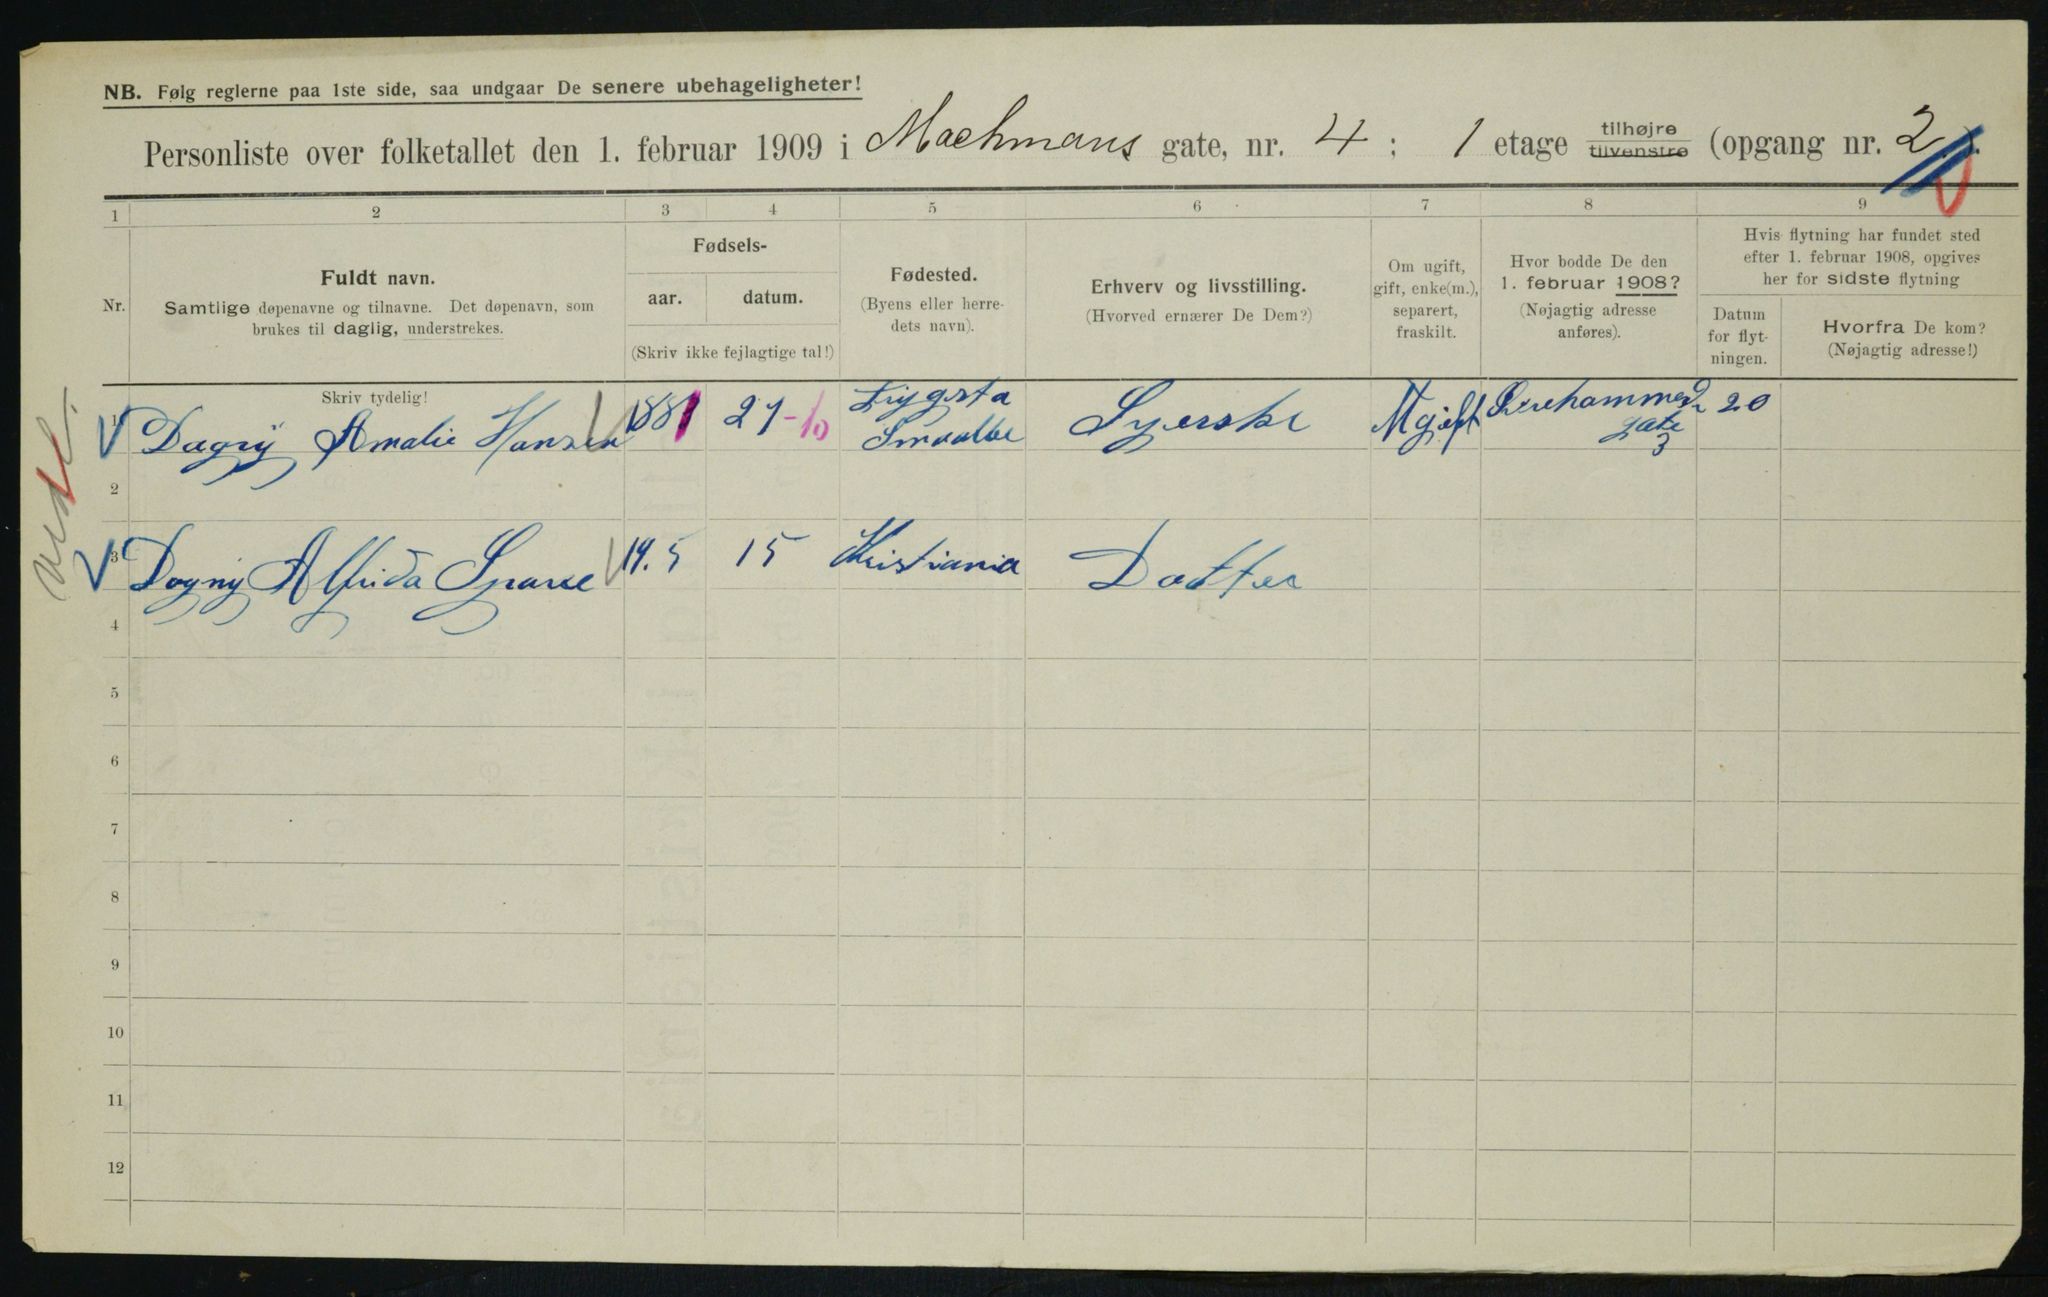 NB. Følg reglerne paa 1ste side, saa undgaar De senere ubehageligheter!
Personliste over folketallet den 1. februar 1909 i Maehmans gate, nr. 4 ; 1 etage tilhøjre tilvenstre (opgang nr. 2 ).
1 2 3 4 5 6 7 8 9
Nr.
Fuldt navn.
Samtlige døpenavne og tilnavne. Det døpenavn, som
brukes til daglig, understrekes.
Fødsels-
aar. datum.
(Skriv ikke fejlagtige tal!)
Fødested.
(Byens eller herre-
dets navn).
Erhverv og livsstilling.
(Hvorved ernærer De Dem?)
Om ugift,
gift, enke(m.),
separert,
fraskilt.
Hvor bodde De den
1. februar 1908?
(Nøjagtig adresse
anføres).
Hvis flytning har fundet sted
efter 1. februar 1908, opgives
her for sidste flytning
Datum
for flyt-
ningen.
Hvorfra De kom?
(Nøjagtig adresse!)
Skriv tydelig!
1 Dagny Amalie Hansen 1881 27-10 Trygsta
Smaalbe Syerske gate
3 20
2
3 Dagny Alfrida 19.5 15 Kristiania Datter
4
5
6
7
8
9
10
11
12